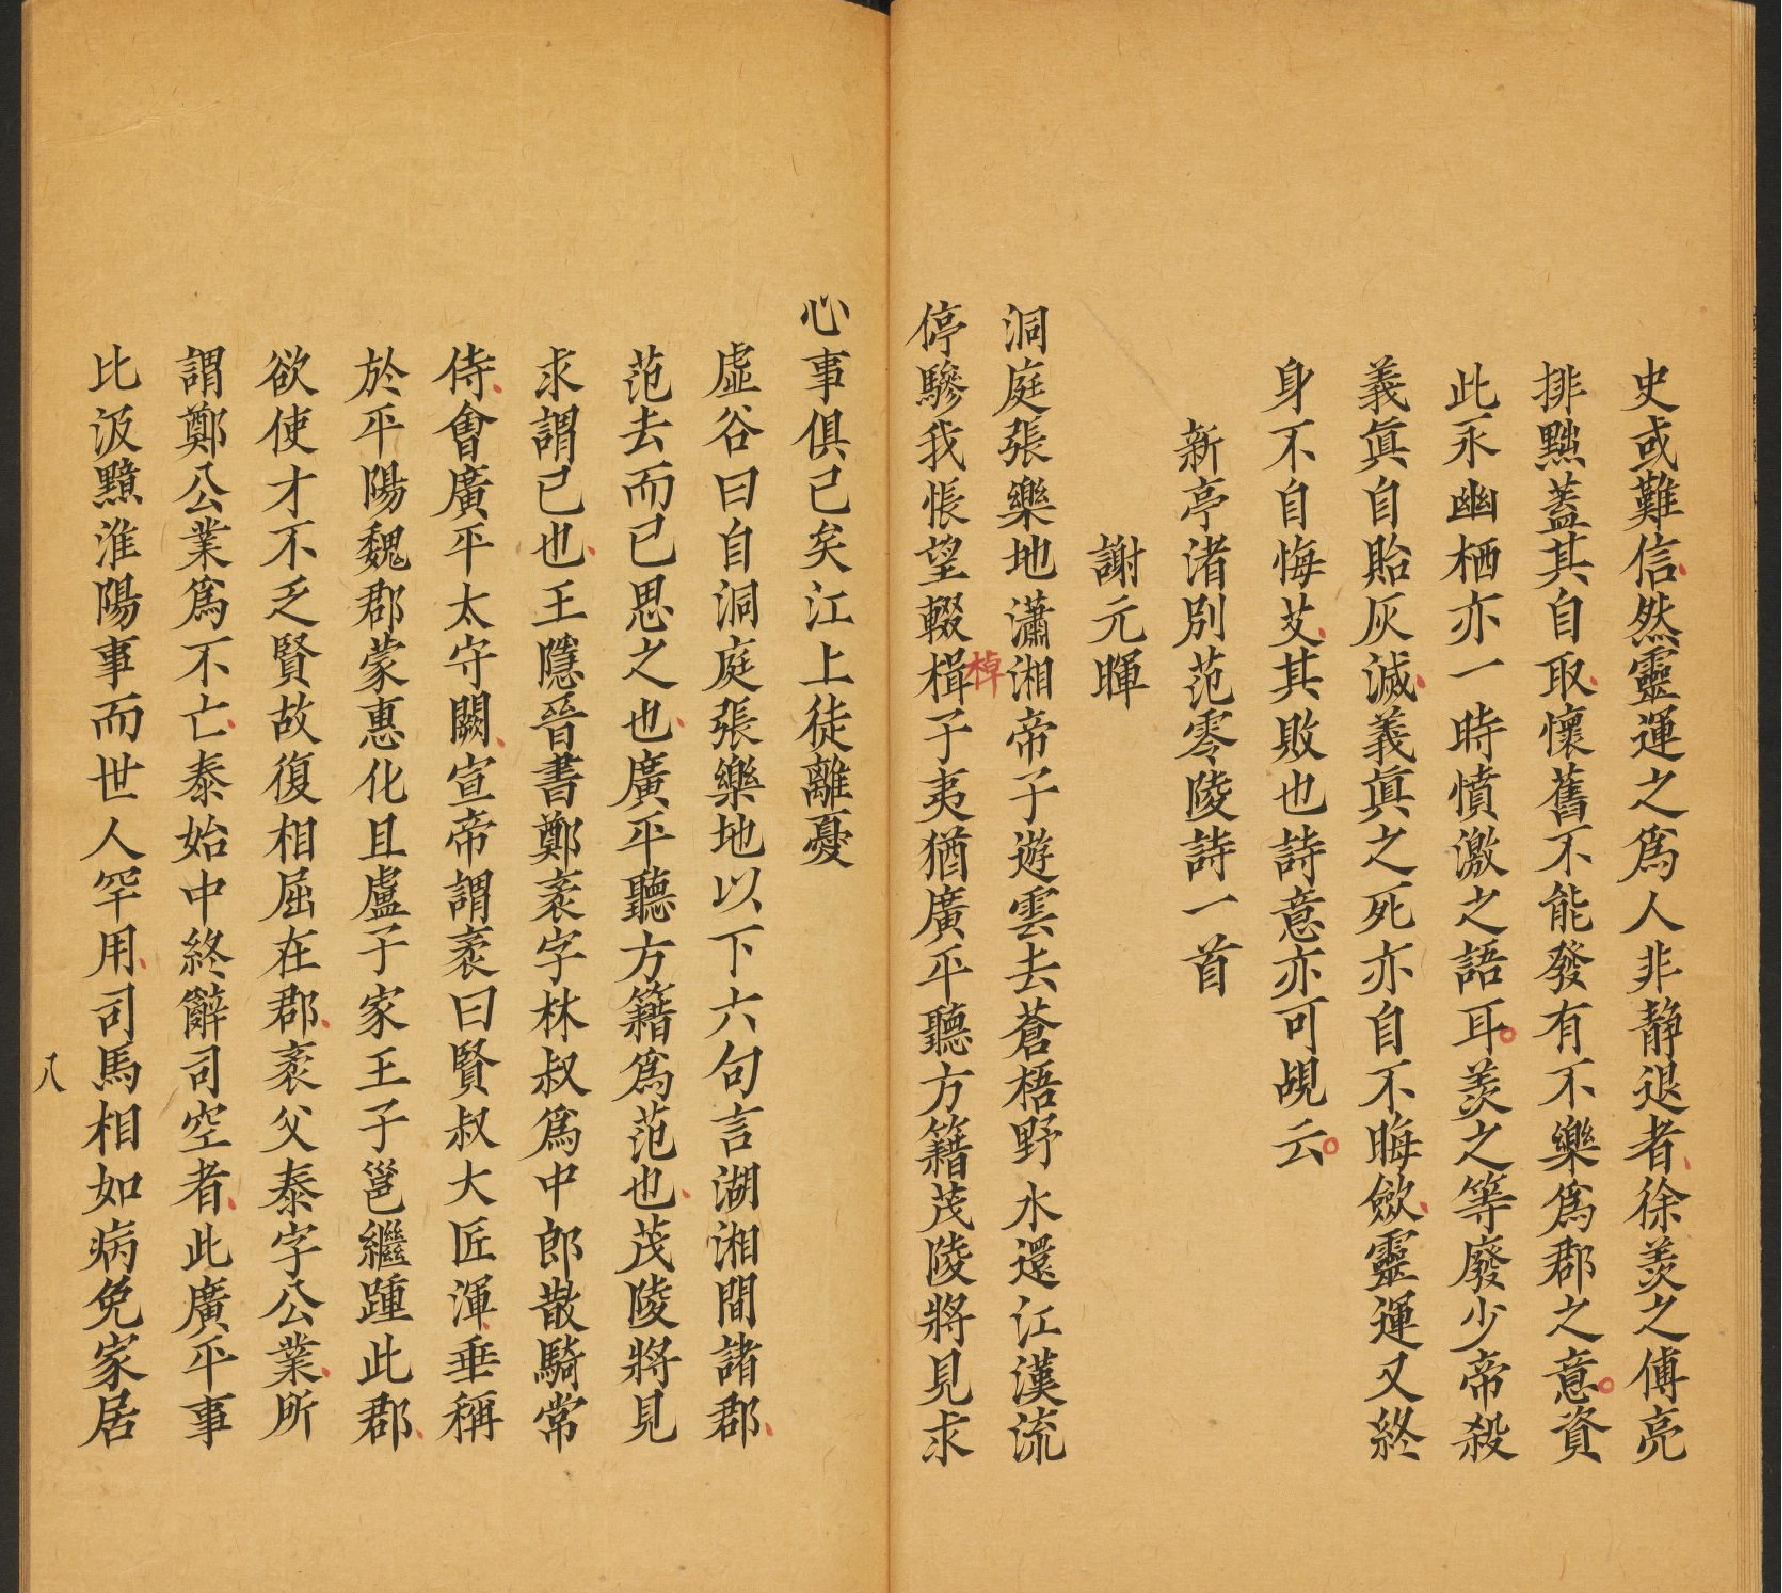 史或難信然靈運之爲人非靜退者徐羨之傅亮
排黜蓋其自取懷舊不能發有不樂爲郡之意資
此永幽栖亦一時憤激之語耳羨之等廢少帝殺
義眞自貽灰滅義眞之死亦自不晦斂靈運又終
身不自悔艾其敗也詩意亦可覘云
新亭渚別范零陵詩一首
謝元暉
洞庭張樂地瀟湘帝子遊雲去蒼梧野水還江漢流
停驂我悵望輟楫子夷猶廣平聽方籍茂陵將見求
棹
心事俱已矣江上徒離憂
虛谷曰自洞庭張樂地以下六句言湖湘間諸郡
范去而已思之也廣平聽方籍爲范也茂陵將見
求謂已也王隱晉書鄭袤字林叔爲中郎散騎常
侍會廣平太守闕宣帝謂袤曰賢叔大匠渾垂稱
於平陽魏郡蒙惠化且盧子家王子邕繼踵此郡
欲使才不乏賢故復相屈在郡袤父泰字公業所
謂鄭公業爲不亡泰始中終辭司空者此廣平事
比汲黯淮陽事而世人罕用司馬相如病免家居
八